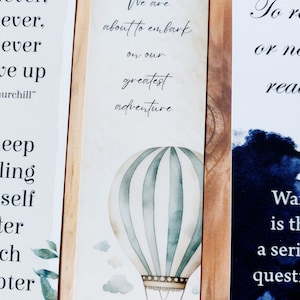 ever,
ever
ve up
hurchill"
eep
ling
self
ter
ch
pter
We are
about to embark
on our
greatest
adventure
To r
or no
read
Wa
is th
a seri
questi